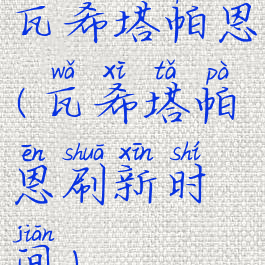 瓦希塔帕恩
wǎ xī tǎ pà
(瓦希塔帕
ēn shuā xīn shí
恩刷新时
jiān
间)